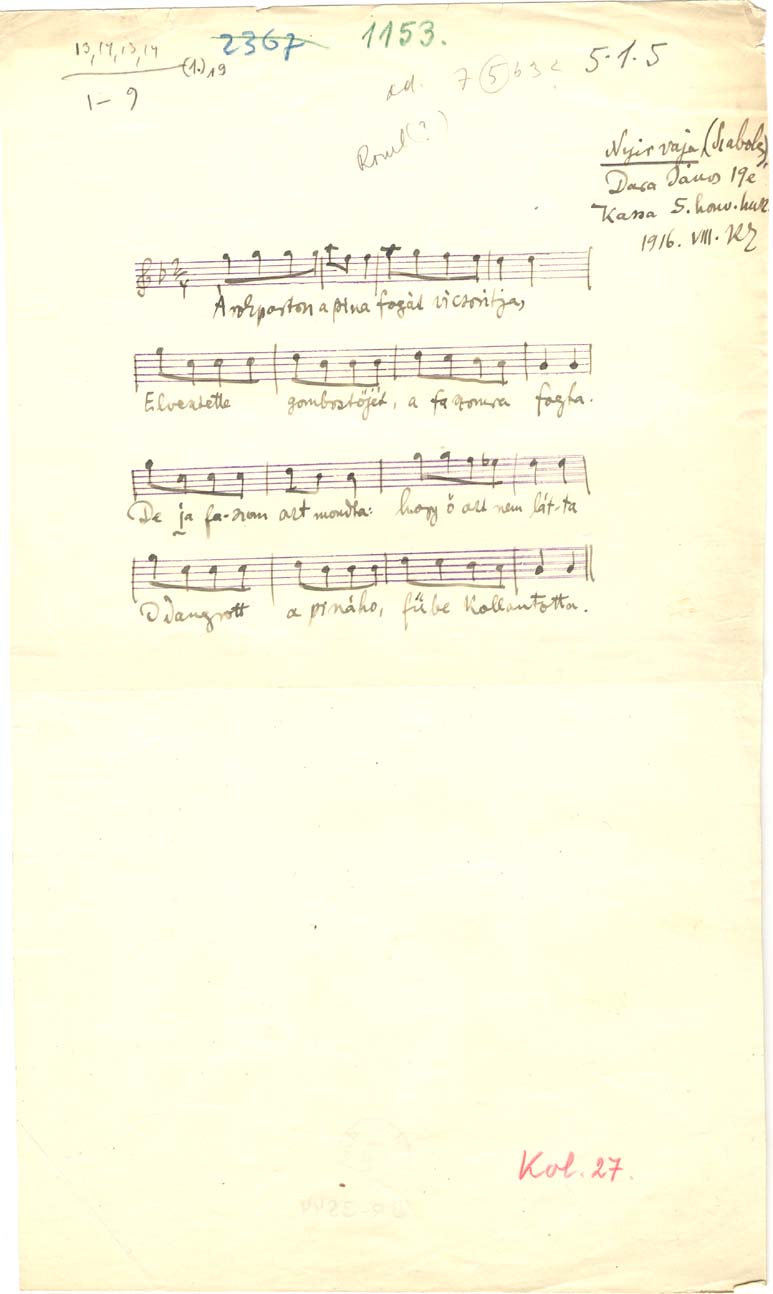 13, 14, 13, 14
2367 1153.
(1.) 19
5·1·5
1–9
ad. 7 5 b3
Roml(?)
Nyir vaja (Szabolcs)
Dara János 19é
Kassa 5. honv. husz.
1916. VIII. KZ
2/4
Árokparton a pina fogát vicsorítja,
Elvesztette gombostőjét, a faszomra fogta.
De ja fa-szom azt mondta: hogy ő azt nem lát-ta
Odaugrott a pináho, fűbe kollantotta.
Kol. 27.